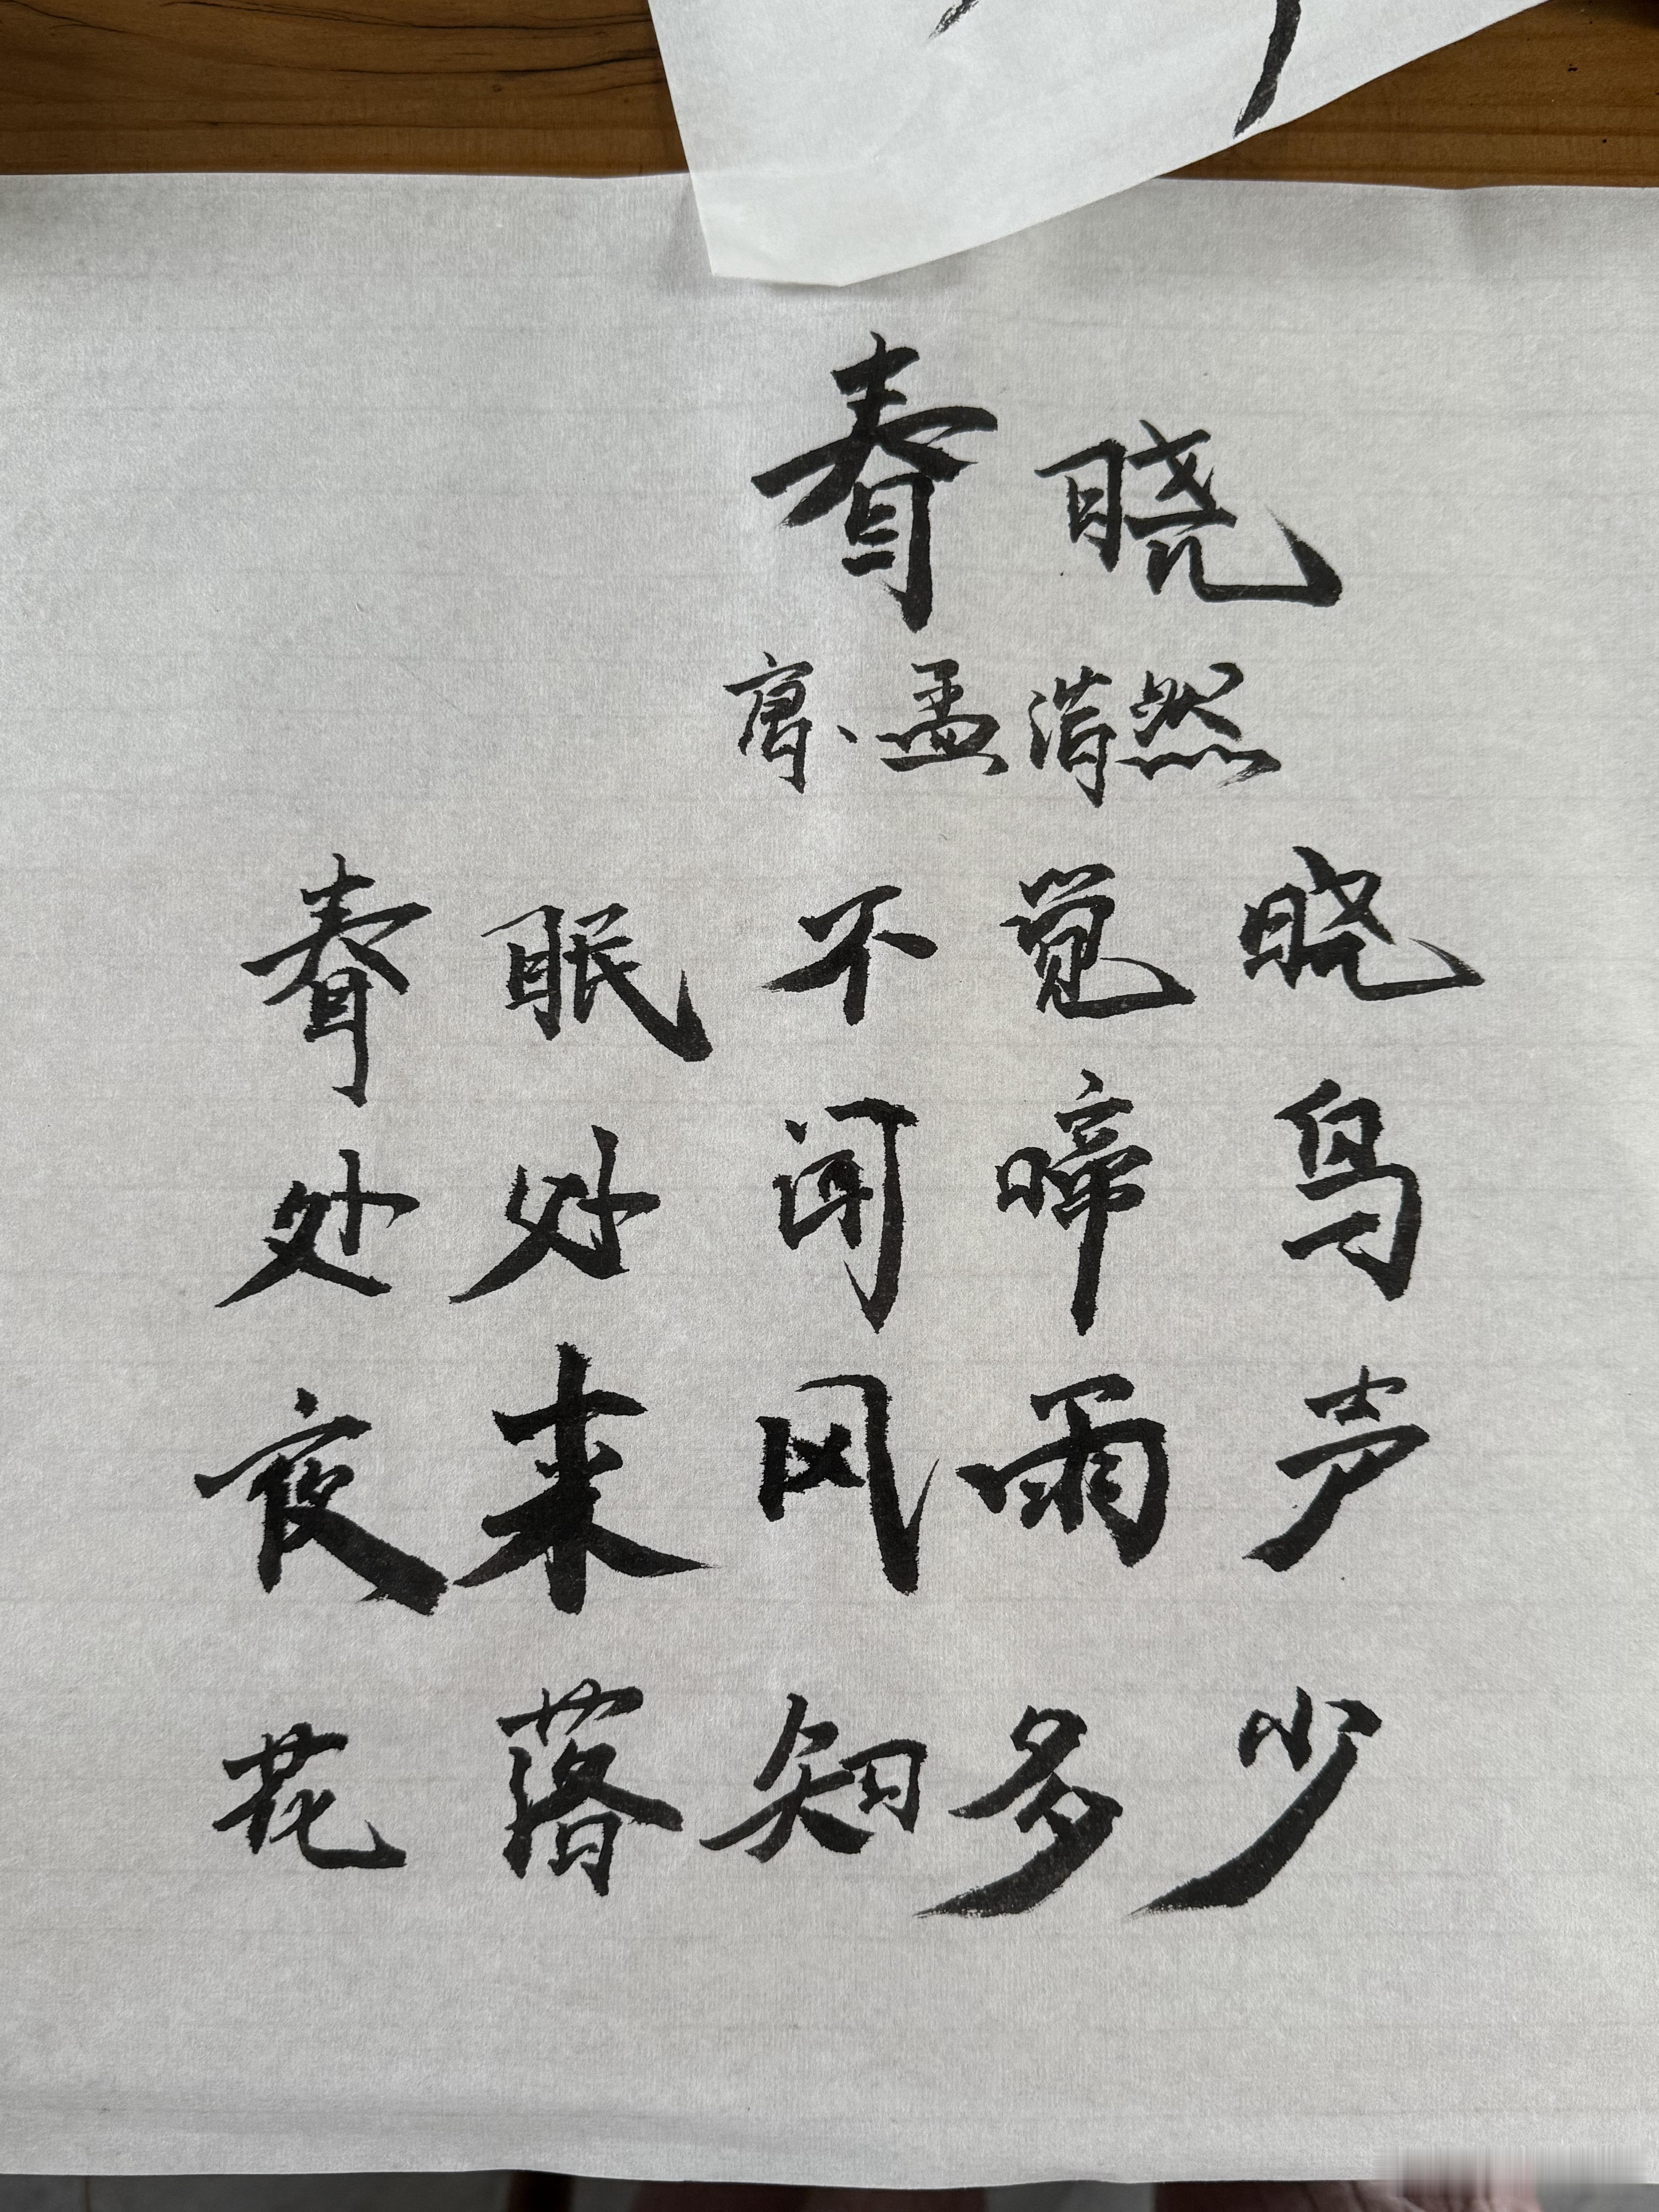 春晓
唐、孟浩然
春眠不觉晓
处处闻啼鸟
夜来风雨声
花落知多少